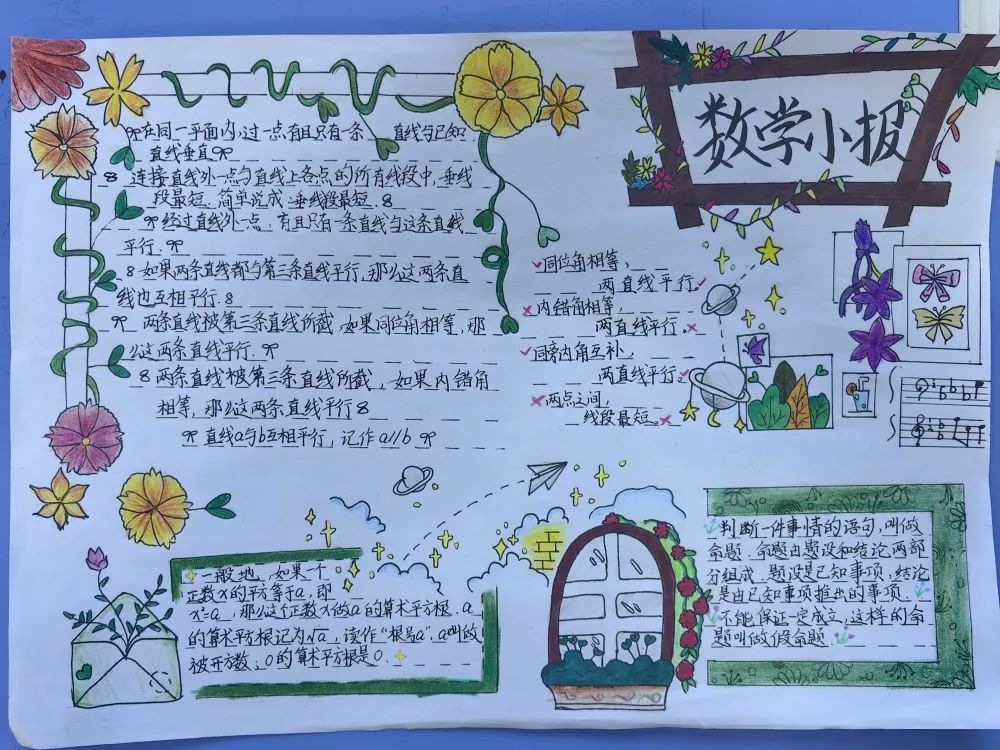 数学小报
在同一平面内,过一点,有且只有一条 直线与已知
直线垂直
连接直线外一点与直线上各点的所有线段中,垂线
段最短.简单说成:垂线段最短.
经过直线外一点,有且只有一条直线与这条直线
平行.
如果两条直线都与第三条直线平行,那么这两条直
线也互相平行.
两条直线被第三条直线所截,如果同位角相等,那
么这两条直线平行.
两条直线被第三条直线所截,如果内错角
相等,那么这两条直线平行
直线a与b互相平行,记作a//b
同位角相等,
两直线平行.
内错角相等,
两直线平行.
同旁内角互补,
两直线平行.
两点之间,
线段最短.
一般地,如果一个
正数x的平方等于a,即
x²=a,那么这个正数x做a的算术平方根.a
的算术平方根记为√a,读作“根号a”.a叫做
被开方数;0的算术平方根是0.
判断一件事情的语句,叫做
命题.命题由题设和结论两部
分组成.题设是已知事项,结论
是由已知事项推出的事项.
不能保证一定成立,这样的命
题叫做假命题